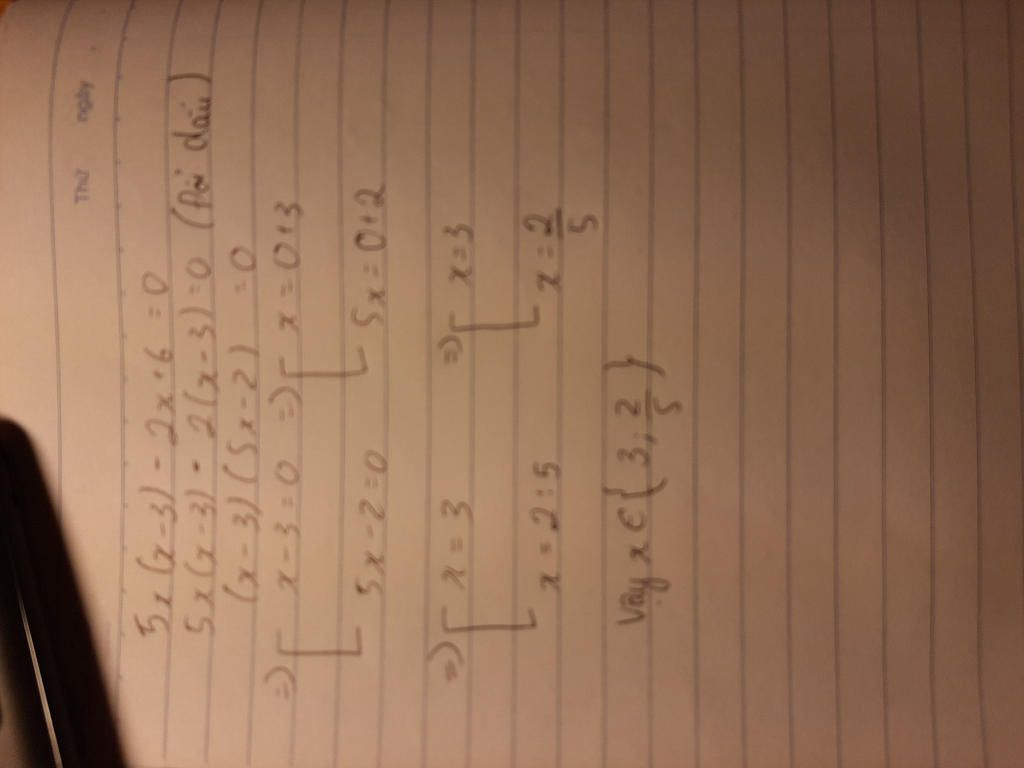 Thứ ngày
5x(x-3) - 2x+6 = 0
5x(x-3) - 2(x-3)=0 (Đổi dấu)
(x-3)(5x-2) = 0
=) [ x-3=0 =) [ x=0+3
5x-2=0 5x=0+2
=) [ x=3 =) [ x=3
x=2:5 x=2/5
Vậy x ∈ {3; 2/5}